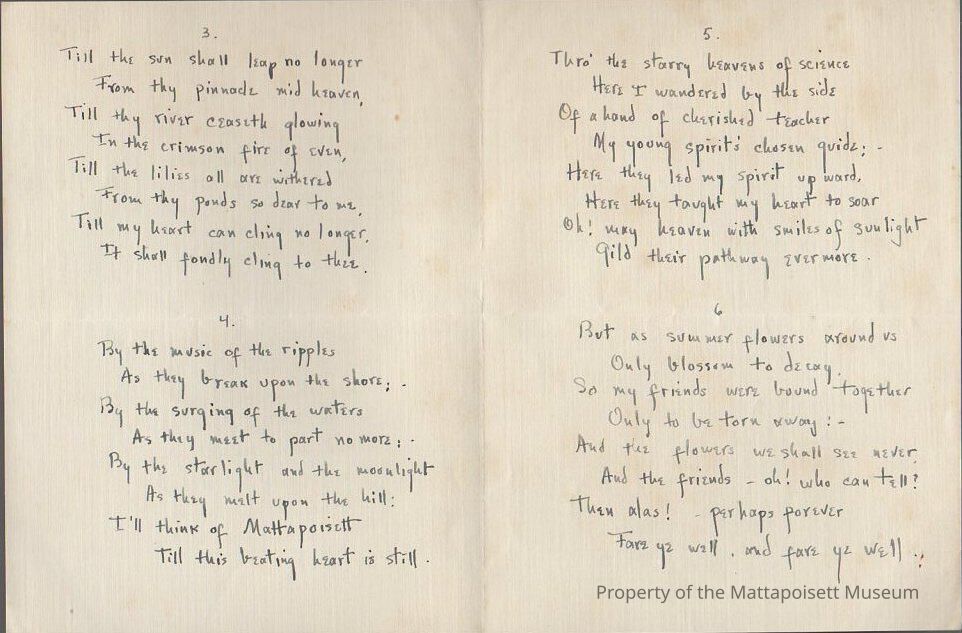 3.
Till the sun shall leap no longer
From thy pinnacle mid heaven,
Till thy river ceaseth glowing
In the crimson fire of even,
Till the lilies all are withered
From thy ponds so dear to me,
Till my heart can cling no longer,
It shall fondly cling to thee.
4.
By the music of the ripples
As they break upon the shore; -
By the surging of the waters
As they meet to part no more; -
By the starlight and the moonlight
As they melt upon the hill:
I'll think of Mattapoisett
Till this beating heart is still.
5.
Thro' the starry heavens of science
Here I wandered by the side
Of a band of cherished teacher
My young spirit's chosen guide; -
Here they led my spirit up ward,
Here they taught my heart to soar
Oh! may heaven with smiles of sunlight
Gild their pathway evermore.
6
But as summer flowers around us
Only blossom to decay,
So my friends were bound together
Only to be torn away: -
And the flowers we shall see never,
And the friends - oh! who can tell?
Then alas! - perhaps forever
Fare ye well, and fare ye well.
Property of the Mattapoisett Museum